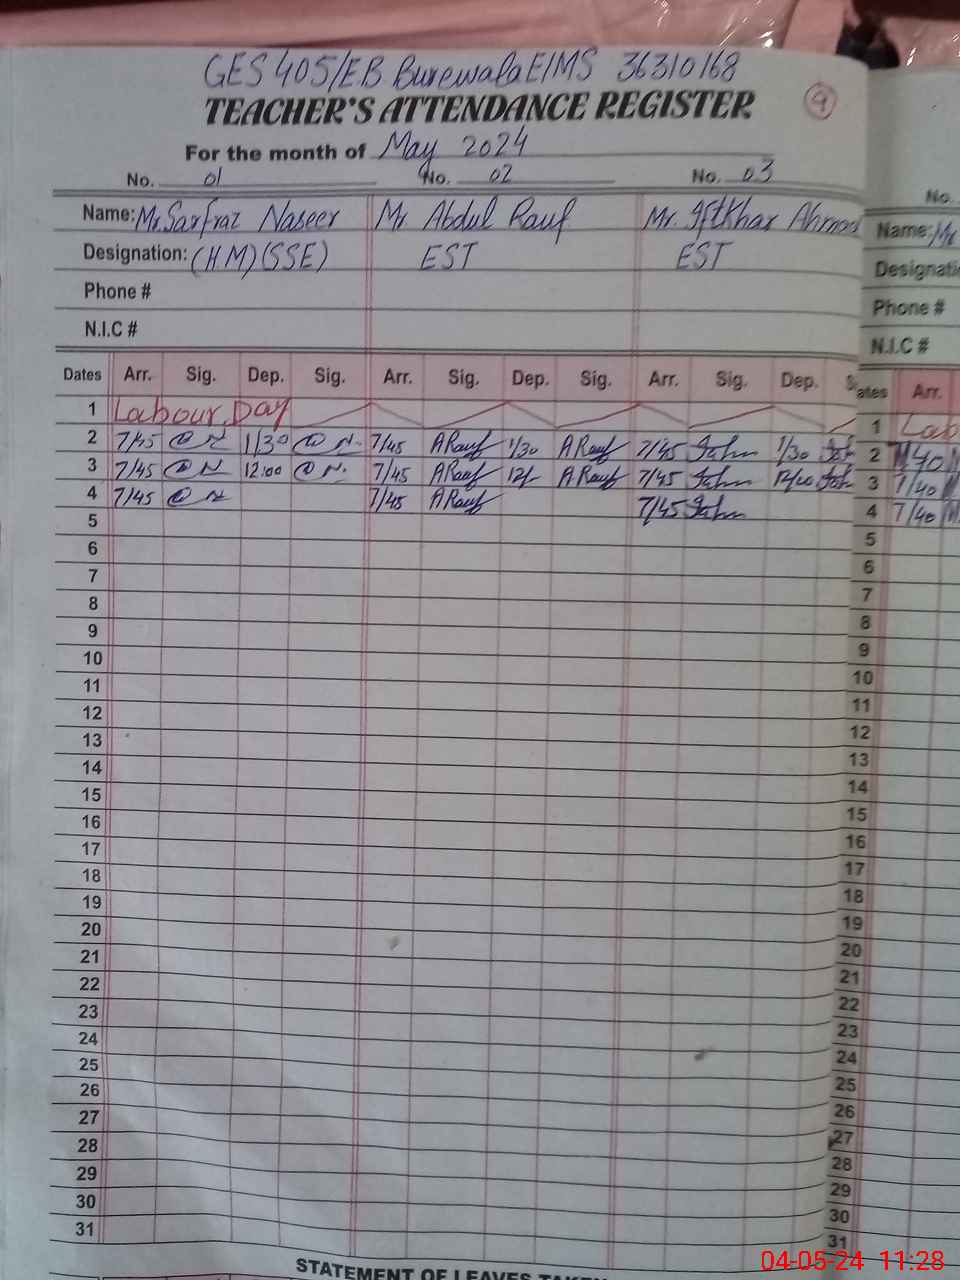 GES 405/EB Burewala EIMS 36310168
TEACHER'S ATTENDANCE REGISTER
9
For the month of May 2024
No. 01 No. 02 No. 03
Name: Mr. Sarfraz Naseer Mr Abdul Rauf Mr. Iftkhar Ahmad
Designation: (H.M) (SSE) EST EST
Phone #
N.I.C #
Dates Arr. Sig. Dep. Sig. Arr. Sig. Dep. Sig. Arr. Sig. Dep.
1 Labour Day
2 7/45 1/30 7/45 ARauf 1/30 ARauf 7/45 1/30
3 7/45 12:00 7/45 ARauf 12/- ARauf 7/45
4 7/45 7/45 ARauf 7/45
5
6
7
8
9
10
11
12
13
14
15
16
17
18
19
20
21
22
23
24
25
26
27
28
29
30
31
STATEMENT OF LEAVES TAKEN
No.
Name:
Phone #
N.I.C #
Arr.
1
2
3 7/40
4 7/40
5
6
7
8
9
10
11
12
13
14
15
16
17
18
19
20
21
22
23
24
25
26
27
28
29
30
31
04-05-24 11:28